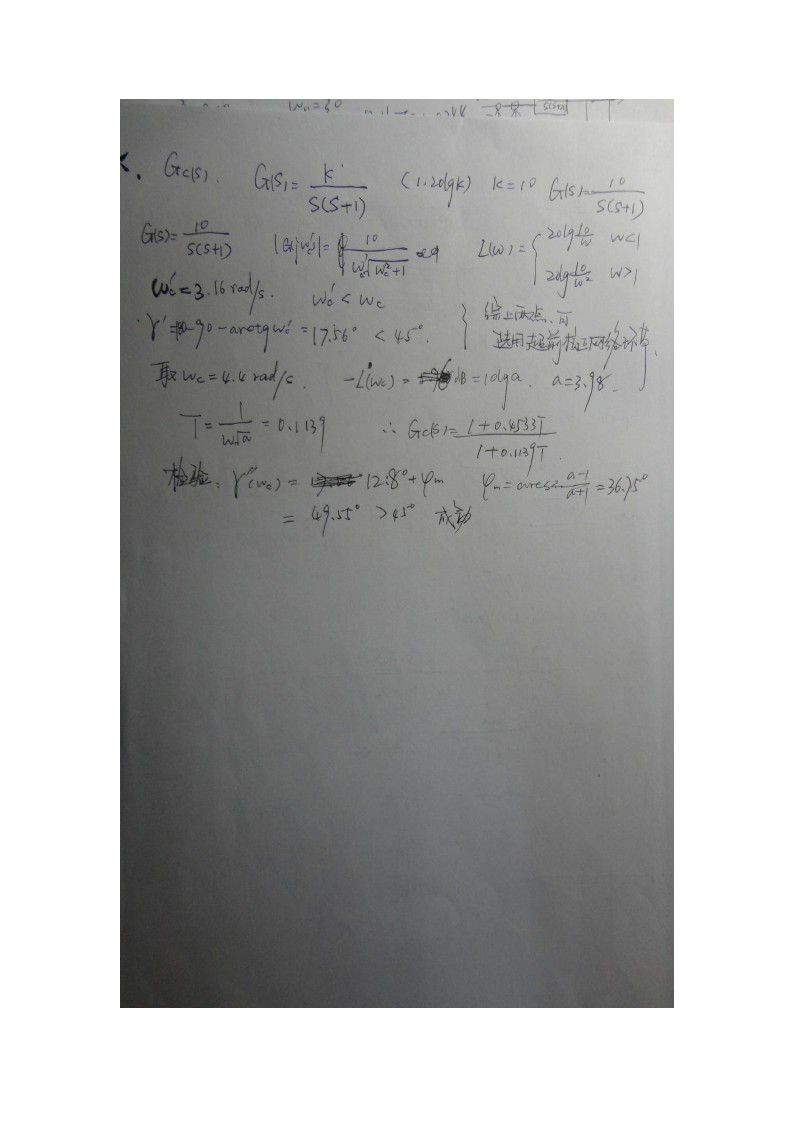 Wn=30
Gc(s). G(s)= K / S(S+1) (1. 20lgk) k=10 G(s)= 10 / S(S+1)
G(s)= 10 / S(S+1) |G(jwc')|= 10 / wc'√(wc'²+1) L(w)= { 20lg 10/w w<1
20lg 10/w² w>1
wc'=3.16 rad/s. wc' < wc
γ'=180-90-arctgwc'=17.56° < 45°. } 综上两点,可
选用超前校正网络环节.
取wc=4.4 rad/s. -L'(wc)= 6dB=10lga. a=3.98.
T= 1 / w√a = 0.1139 ∴ Gc(s)= 1+0.4533T / 1+0.1139T.
检验: γ''(wc)= 12.8°+φm φm=arcsin a-1 / a+1 =36.75°
= 49.55° >45° 成功